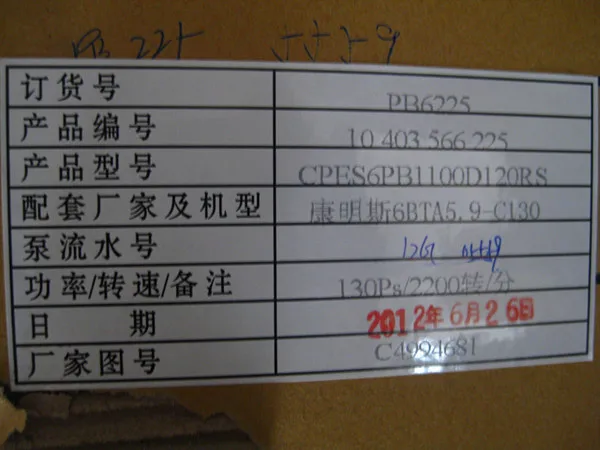 订货号 PB6225
产品编号 10 403 566 225
产品型号 CPES6PB1100D120RS
配套厂家及机型 康明斯6BTA5.9-C130
泵流水号
功率/转速/备注 130Ps/2200转/分
日 期 2012年6月26日
厂家图号 C4994681